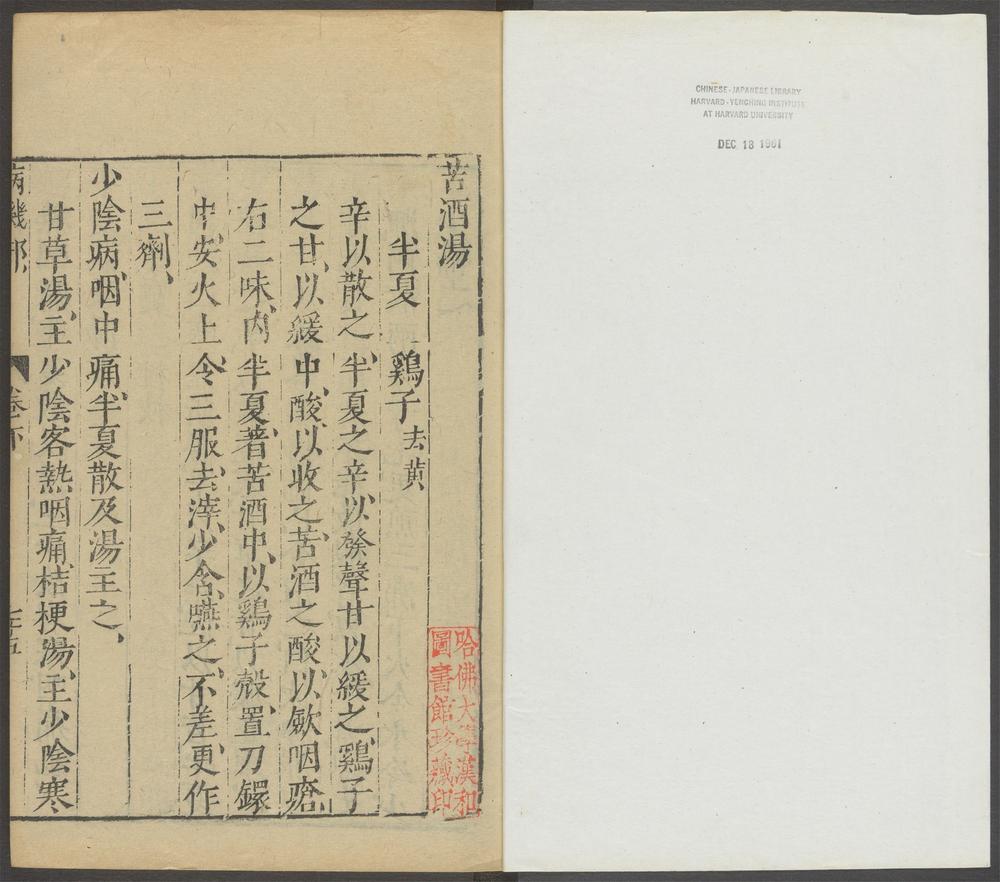 苦酒湯
半夏 鷄子去黄
辛以散之、半夏之辛、以發聲甘以緩之、鷄子
之甘、以緩中、酸以收之、苦酒之酸、以歛咽瘡、
右二味、内半夏、著苦酒中、以鷄子殼、置刀鐶
中、安火上、令三服、去滓、少含嚥之、不差、更作
三劑、
少陰病、咽中痛、半夏散及湯主之、
甘草湯、主少陰客熱咽痛、桔梗湯、主少陰寒
病機部 卷下
哈佛大學漢和
圖書館珍藏印
CHINESE-JAPANESE LIBRARY
HARVARD-YENCHING INSTITUTE
AT HARVARD UNIVERSITY
DEC 18 1961